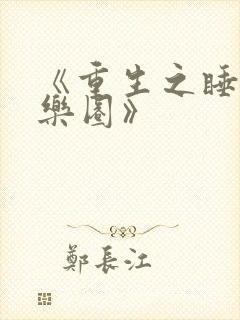 《重生之睡
樂園》
鄭長江